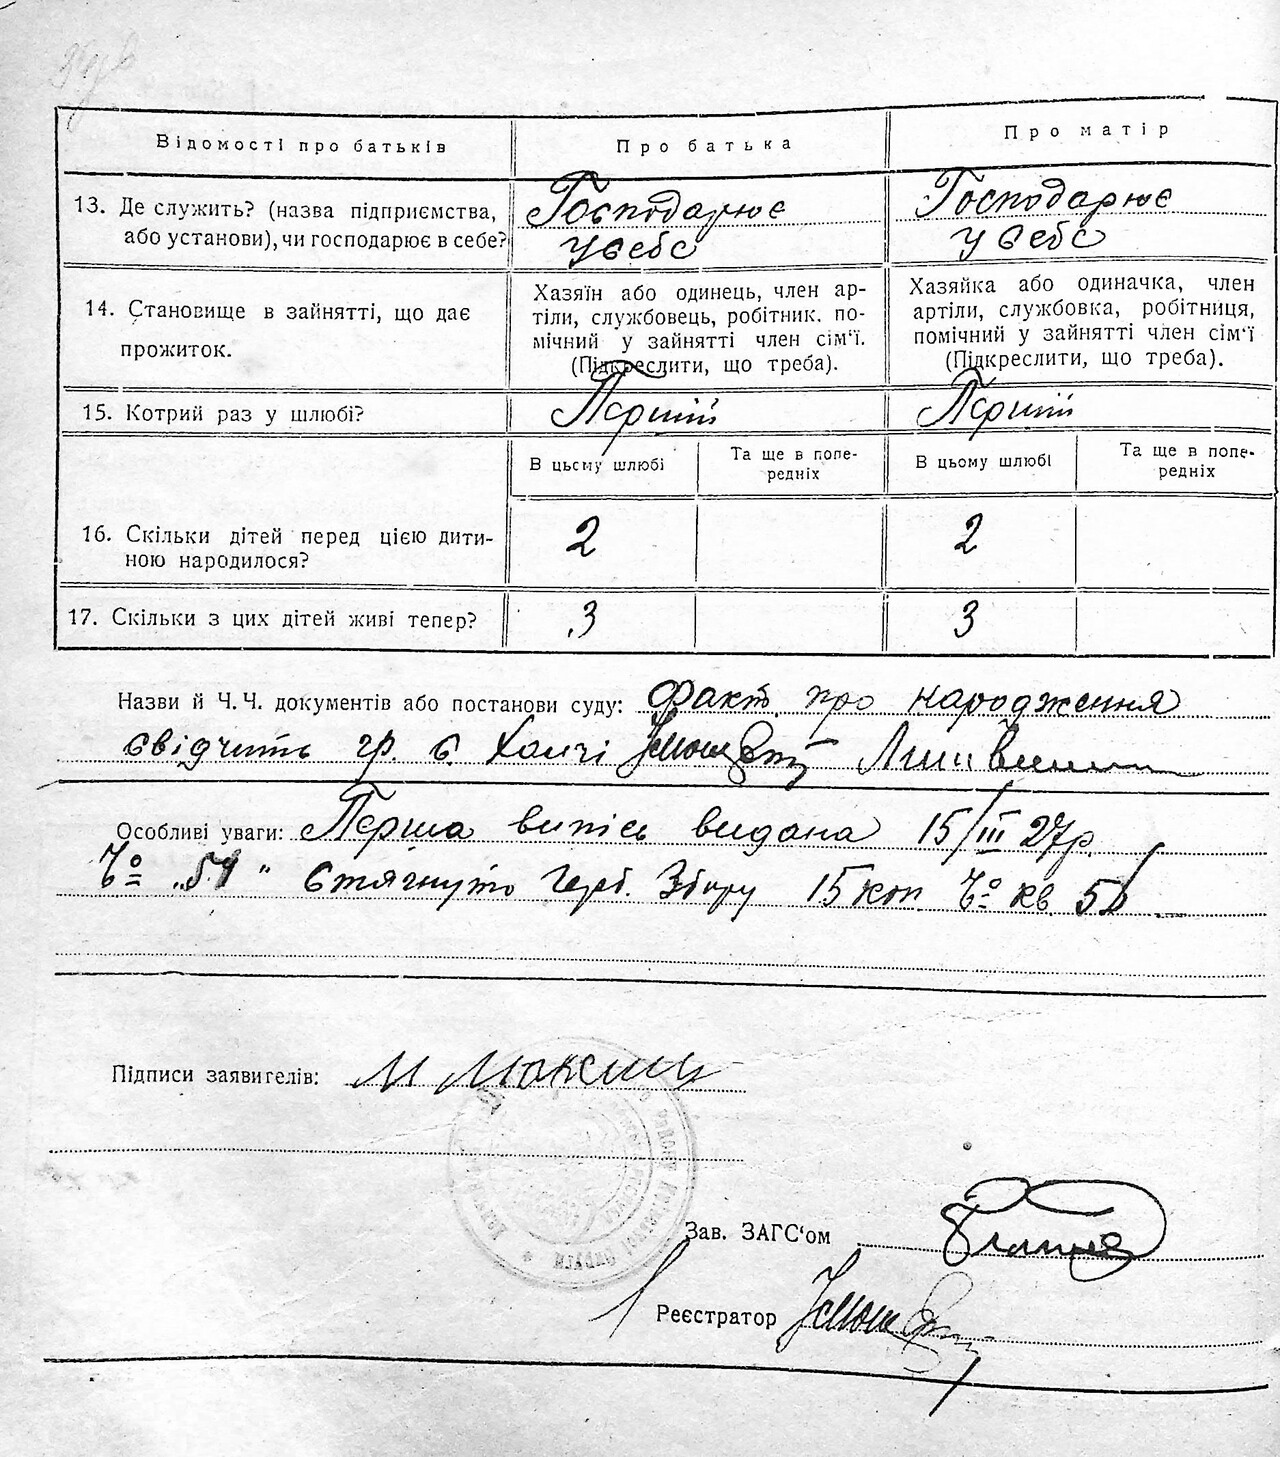 Відомості про батьків
Про батька
Про матір
13. Де служить? (назва підприємства,
або установи), чи господарює в себе?
Господарює
у себе
Господарює
у себе
14. Становище в зайнятті, що дає
прожиток.
Хазяїн або одинець, член ар-
тіли, службовець, робітник. по-
мічний у зайнятті член сім‘ї.
(Підкреслити, що треба).
Хазяйка або одиначка, член
артіли, службовка, робітниця,
помічний у зайнятті член сім‘ї
(Підкреслити, що треба).
15. Котрий раз у шлюбі?
Перший
Перший
В цьсму шлюбі
Та ще в попе-
редніх
В цьому шлюбі
Та ще в попе-
редніх
16. Скільки дітей перед цією дити-
ною народилося?
2
2
17. Скільки з цих дітей живі тепер?
3
3
Назви й Ч. Ч. документів або постанови суду: Факт про народження
свідчить гр. с.
Особливі уваги: Перша випись видана 15/III 27р.
Чо стягнуто герб. Збору 15 коп. Чо кв.
Підписи заявителів: М
Зав. ЗАГС‘ом
Реєстратор